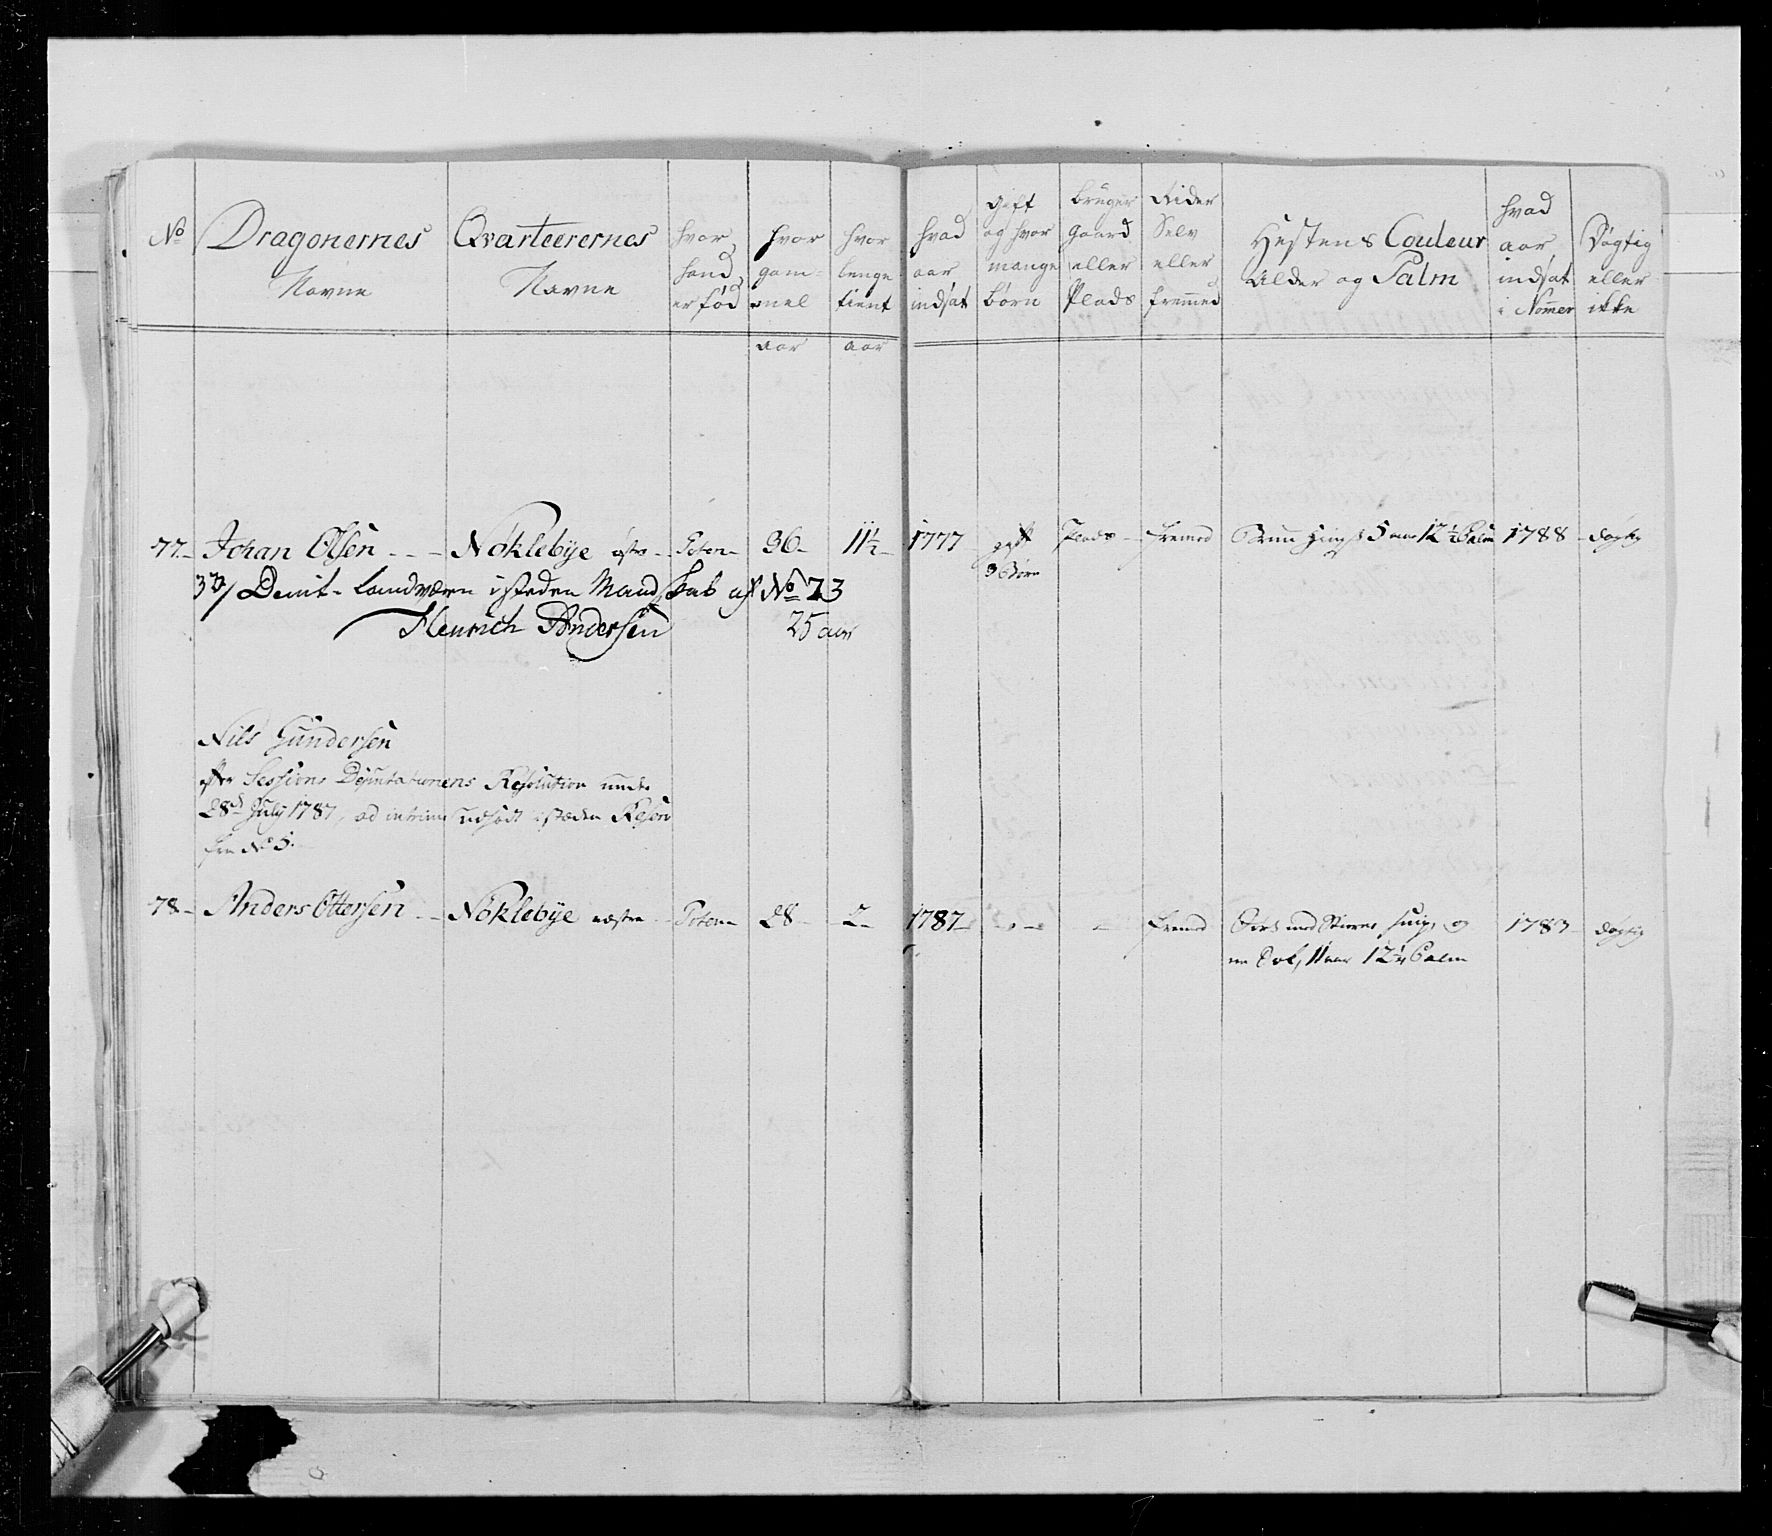 No
Dragonernes Navne
Qvarteerernes Navne
hvor hand er fød
hvor gam-mel
hvor lenge tient
hvad aar indsat
Gift og hvor mange børn
bruger Gaard eller Plads
Rider Selv eller fremmed
Hestens Couleur Alder og Palm
hvad aar indsat i Nommer
Dögtig eller ikke
aar aar
77 Johan Olsen Nöklebÿe østre Toten 36 11½ 1777 gift Plads fremed Bruun Hingst 5 aar 12½ Palm 1788 dögtig
3 Börn
Dimit. Landværn isteden Mandskab af No 73
Henrich Andersen 25 aar
Nils Gundersen
efter Sessions Deputationens Resolution under
28d July 1787, ad interim udsadt isteden Reserv
fra No 5.
78 Anders Ottersen Nöklebÿe væstre Toten 28 2 1787 fremed med Stierne og
11 aar 12¼ Palm 1783 dögtig